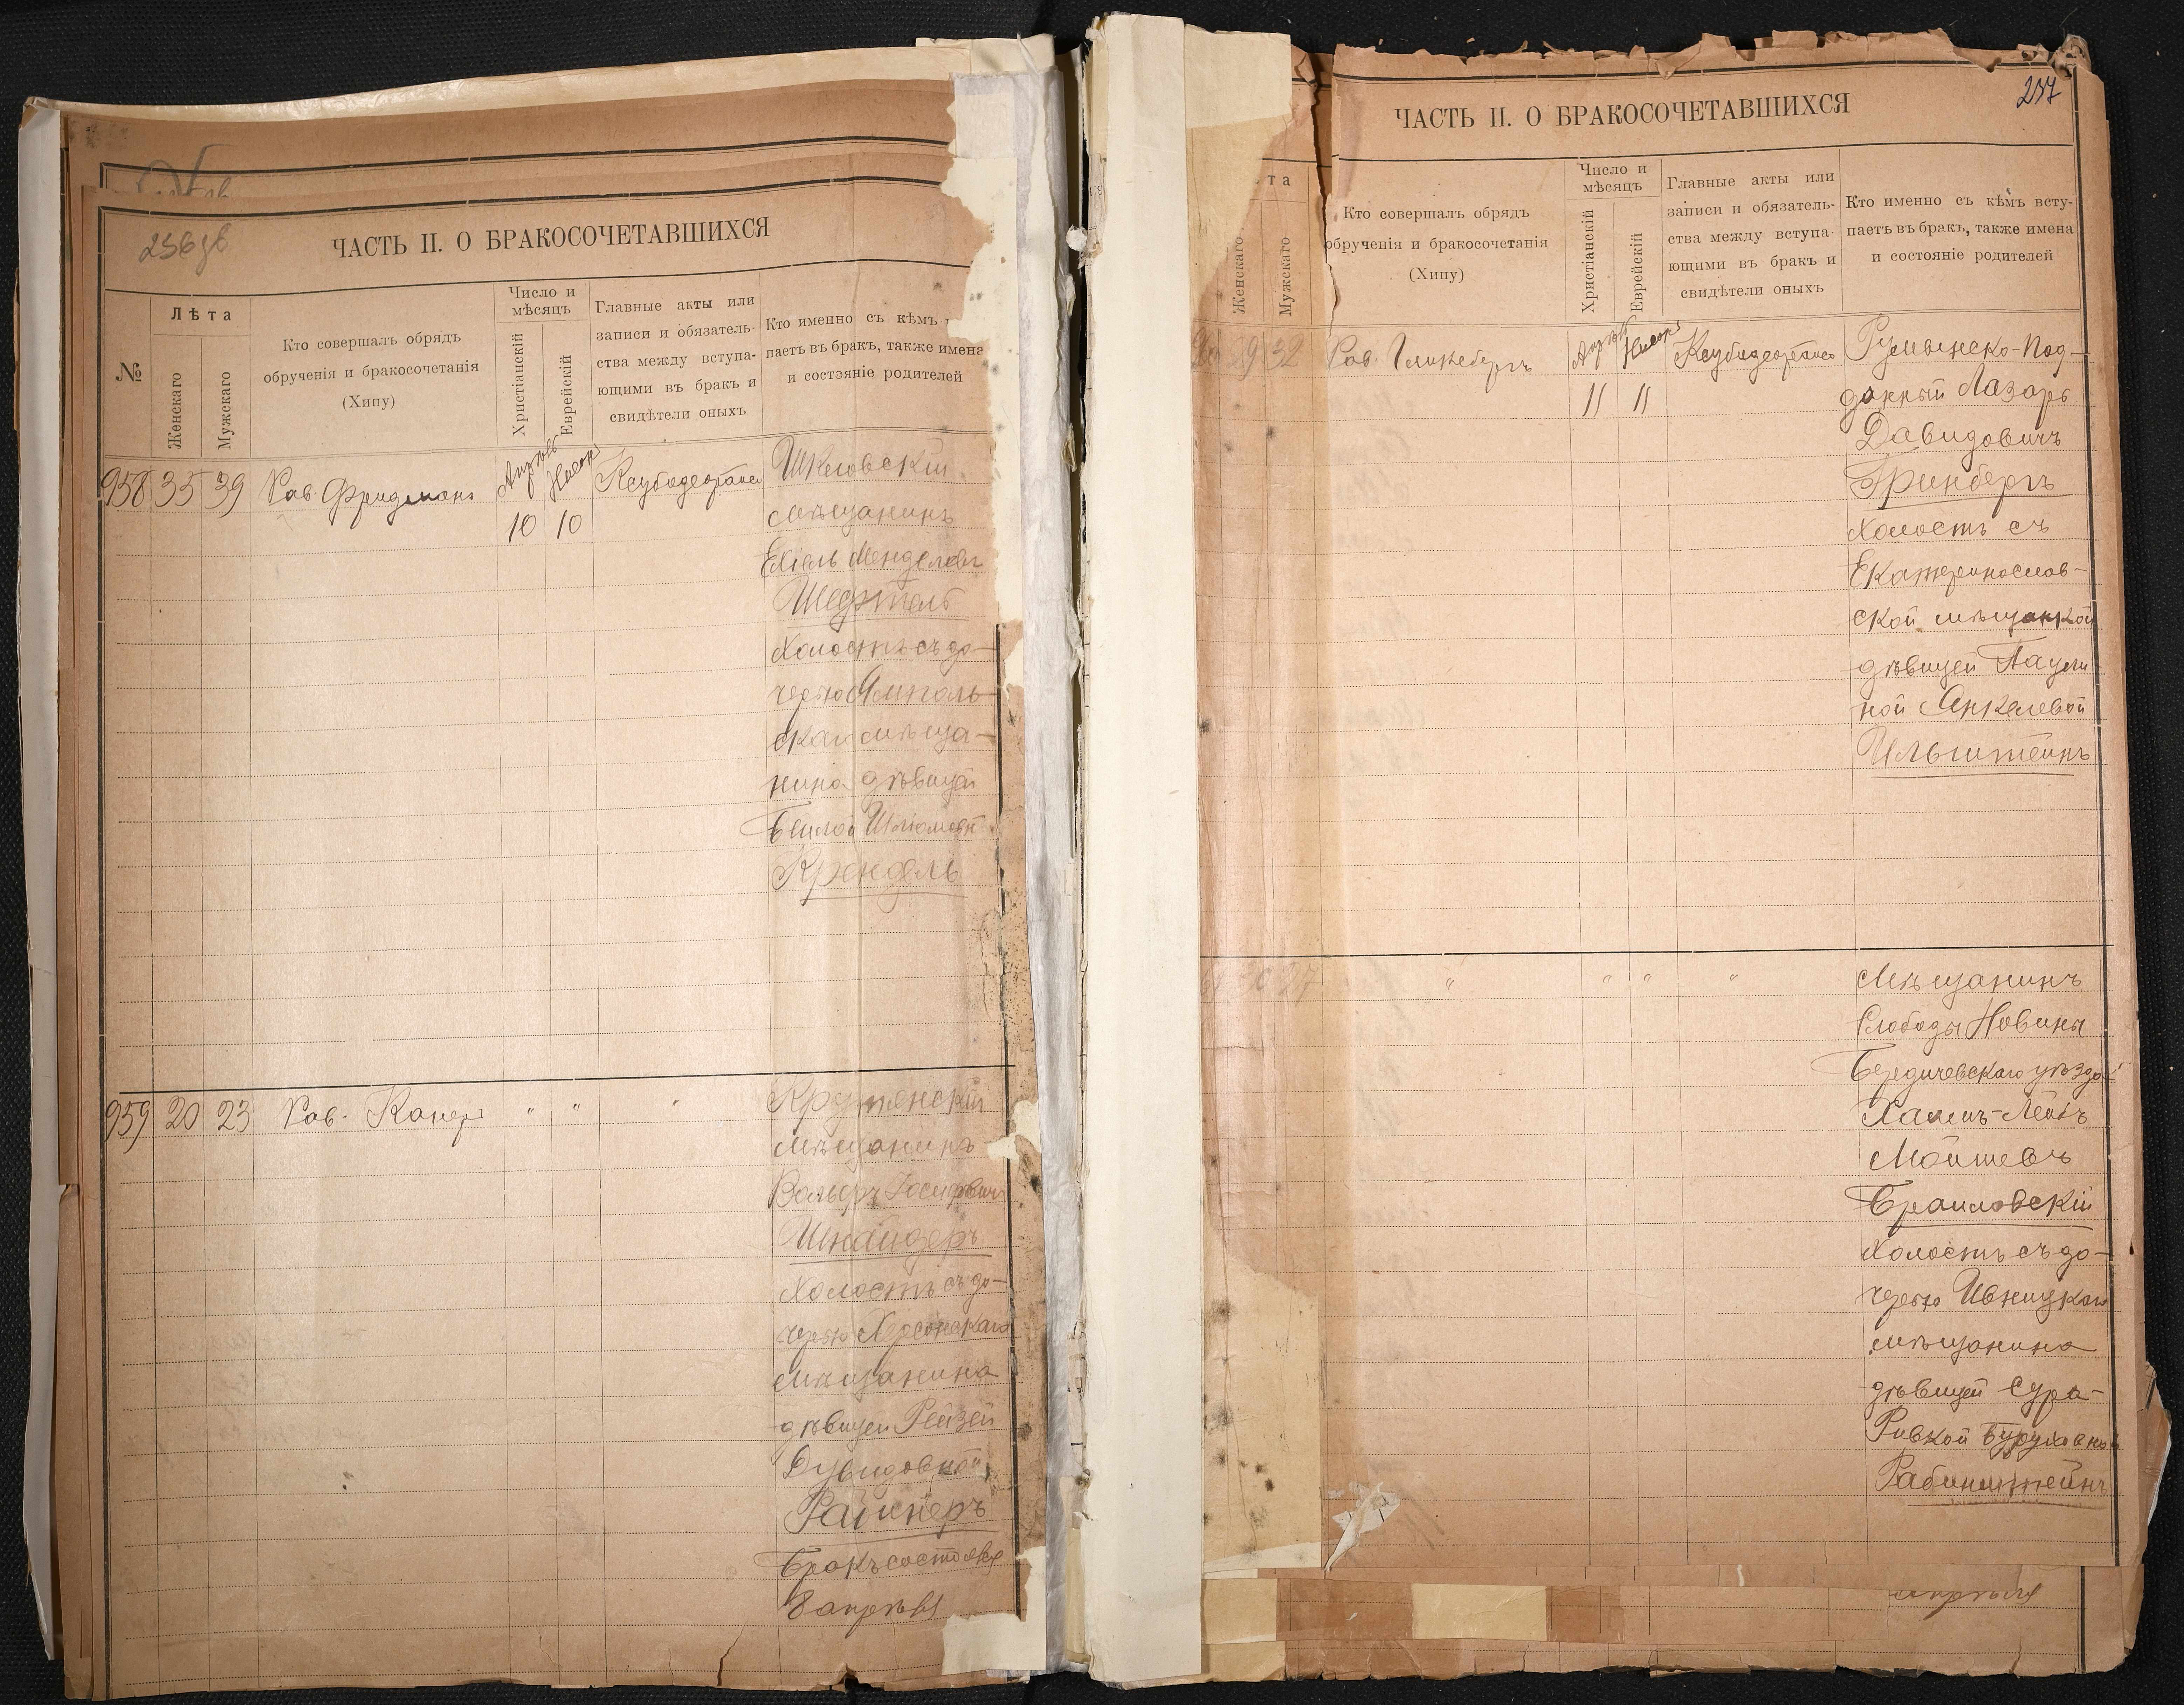 256 об
ЧАСТЬ II. О БРАКОСОЧЕТАВШИХСЯ
№
Лѣта
Женскаго
Мужскаго
Кто совершалъ обрядъ
обрученія и бракосочетанія
(Хипу)
Число и
мѣсяцъ
Христіанскій
Еврейскій
Главные акты или
записи и обязатель-
ства между вступа-
ющими въ бракъ и
свидѣтели оныхъ
Кто именно съ кѣмъ
паетъ въ бракъ, также имена
и состояніе родителей
958 35 39 Рав. Фридманъ
Апрѣль Нисонъ
10 10
Шкловскій
мѣщанинъ
Ехіель Менделевъ
Шефтель
холостъ съ до-
черью Ямполь-
скаго мѣща-
нина дѣвицей
Бейлой
Крендель
959 20 23 Рав. Канеръ " " "
мѣщанинъ
Вольфъ Іосифовичъ
Шнайдеръ
холостъ съ до-
черью Херсонскаго
мѣщанина
дѣвицей Рейзей
Дувидовной
Райнеръ
Бракъ состоялся
8 апрѣля
257
ЧАСТЬ II. О БРАКОСОЧЕТАВШИХСЯ
та
Женскаго
Мужскаго
Кто совершалъ обрядъ
обрученія и бракосочетанія
(Хипу)
Число и
мѣсяцъ
Христіанскій
Еврейскій
Главные акты или
записи и обязатель-
ства между вступа-
ющими въ бракъ и
свидѣтели оныхъ
Кто именно съ кѣмъ всту-
паетъ въ бракъ, также имена
и состояніе родителей
29 32 Рав. Гликсбергъ
Апрѣль Нисонъ
11 11
Румынско-Под-
данный Лазарь
Давидовичъ
Гринбергъ
холостъ съ
Екатеринослав-
ской мѣщанкой
дѣвицей Паули-
ной Янкелевой
Ильштейнъ
27 " " " "
Мѣщанинъ
Слободы Новины
Бердичевскаго уѣзда
Хаимъ-Лейбъ
Мойшевъ
Браиловскій
холостъ съ до-
черью Ивницкаго
мѣщанина
дѣвицей Сура-
Ривкой
Рабинштейнъ
апрѣля